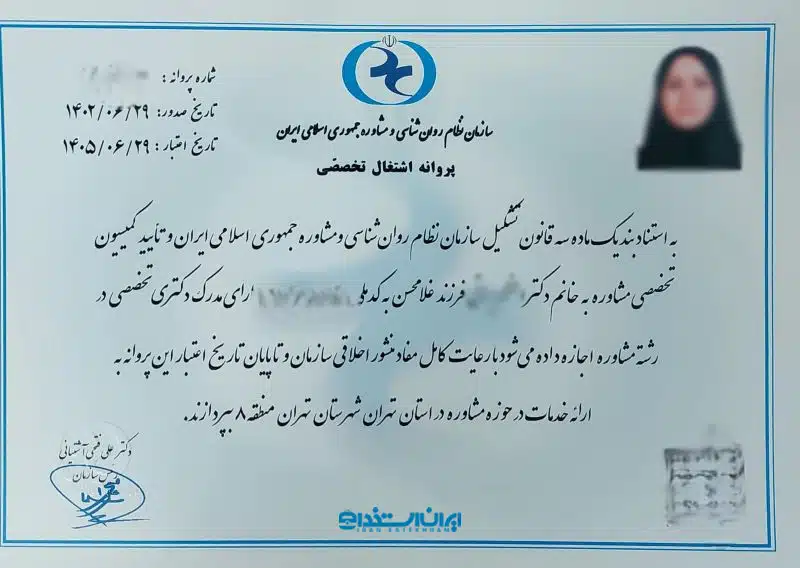 شماره پروانه :
تاریخ صدور: ۱۴۰۲/۰۶/۲۹
تاریخ اعتبار : ۱۴۰۵/۰۶/۲۹
سازمان نظام روان شناسی و مشاوره جمهوری اسلامی ایران
پروانه اشتغال تخصصی
به استناد بند یک ماده سه قانون تشکیل سازمان نظام روان شناسی و مشاوره جمهوری اسلامی ایران و تأیید کمیسیون
تخصصی مشاوره به خانم دکتر فرزند غلامحسن به کدملی رای مدرک دکتری تخصصی در
رشته مشاوره اجازه داده می شود با رعایت کامل مفاد منشور اخلاقی سازمان و تا پایان تاریخ اعتبار این پروانه به
ارائه خدمات در حوزه مشاوره در استان تهران شهرستان تهران منطقه ۸ بپردازند.
دکتر علی فتحی آشتیانی
رئیس سازمان
ایران استخدام
IRAN ESTEKHDAM